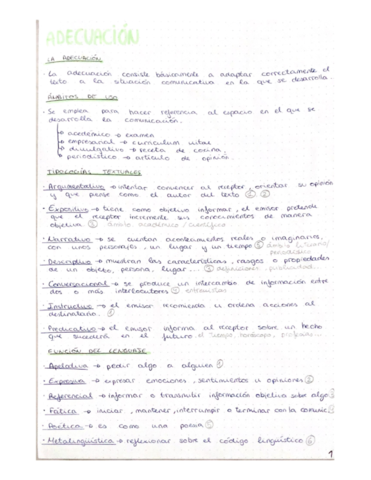 ADECUACIÓN
LA ADECUACIÓN
· La adecuación consiste básicamente a adaptar correctamente el
texto a la situación comunicativa en la que se desarrolla.
ÁMBITOS DE USO
· Se emplea para hacer referencia al espacio en el que se
desarrolla la comunicación.
→ académico → examen
→ empresarial → curriculum vitae
→ divulgativo → receta de cocina
→ periodístico → artículo de opinión.
TIPOLOGÍAS TEXTUALES
· Argumentativo → intentar convencer al receptor, orientar su opinión
y que piense como el autor del texto ① ②
· Expositivo → tiene como objetivo informar, el emisor pretende
que el receptor incremente sus conocimientos de manera
objetiva ③ académico / científico
· Narrativo → se cuentan acontecimientos reales o imaginarios,
con unos personajes, un lugar y un tiempo
· Descriptivo → muestran las características, rasgos o propiedades
de un objeto, persona, lugar...
· Conversacional → se produce un intercambio de información entre
dos o más interlocutores
· Instructivo → el emisor recomienda u ordena acciones al
destinatario.
· Predicativo → el emisor informa al receptor sobre un hecho
que sucederá en el futuro. el tiempo, horóscopo,
FUNCIÓN DEL LENGUAJE
· Apelativa → pedir algo a alguien
· Expresiva → expresar emociones, sentimientos u opiniones
· Referencial → informar o transmitir información objetiva sobre algo
· Fática → iniciar, mantener, interrumpir o terminar con la comunic.
· Poética → es como una poesía
· Metalingüística → reflexionar sobre el código lingüístico
1